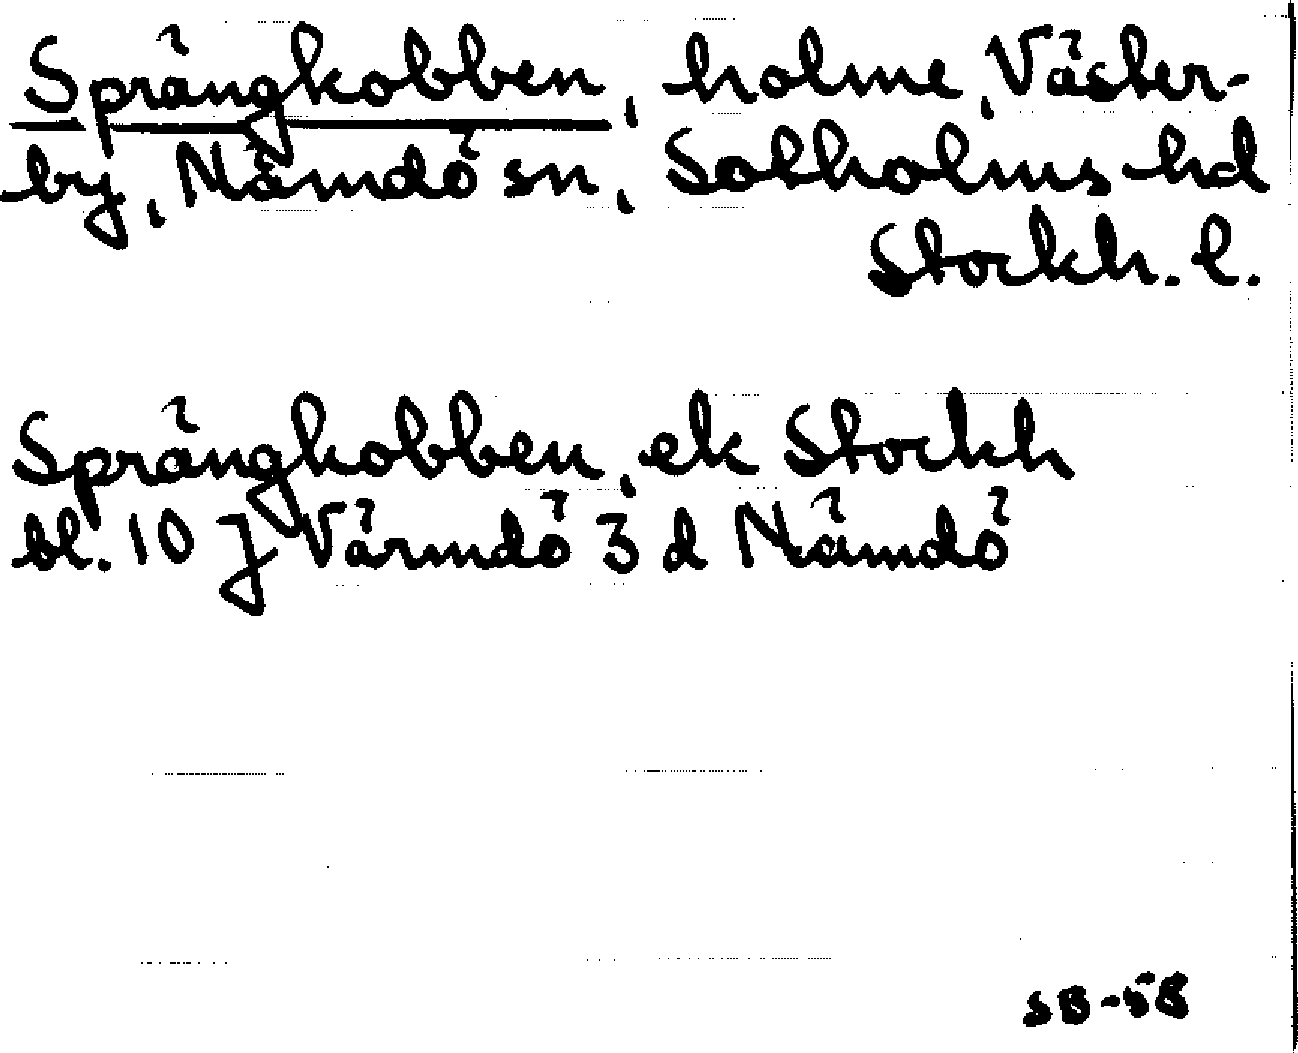 Sprängkobben, holme, Väster-
by, Nämdö sn, Sotholms hd
Stockh. l.
Sprängkobben, ek Stockh
bl. 10 J Värmdö 3 d Nämdö
SB-58